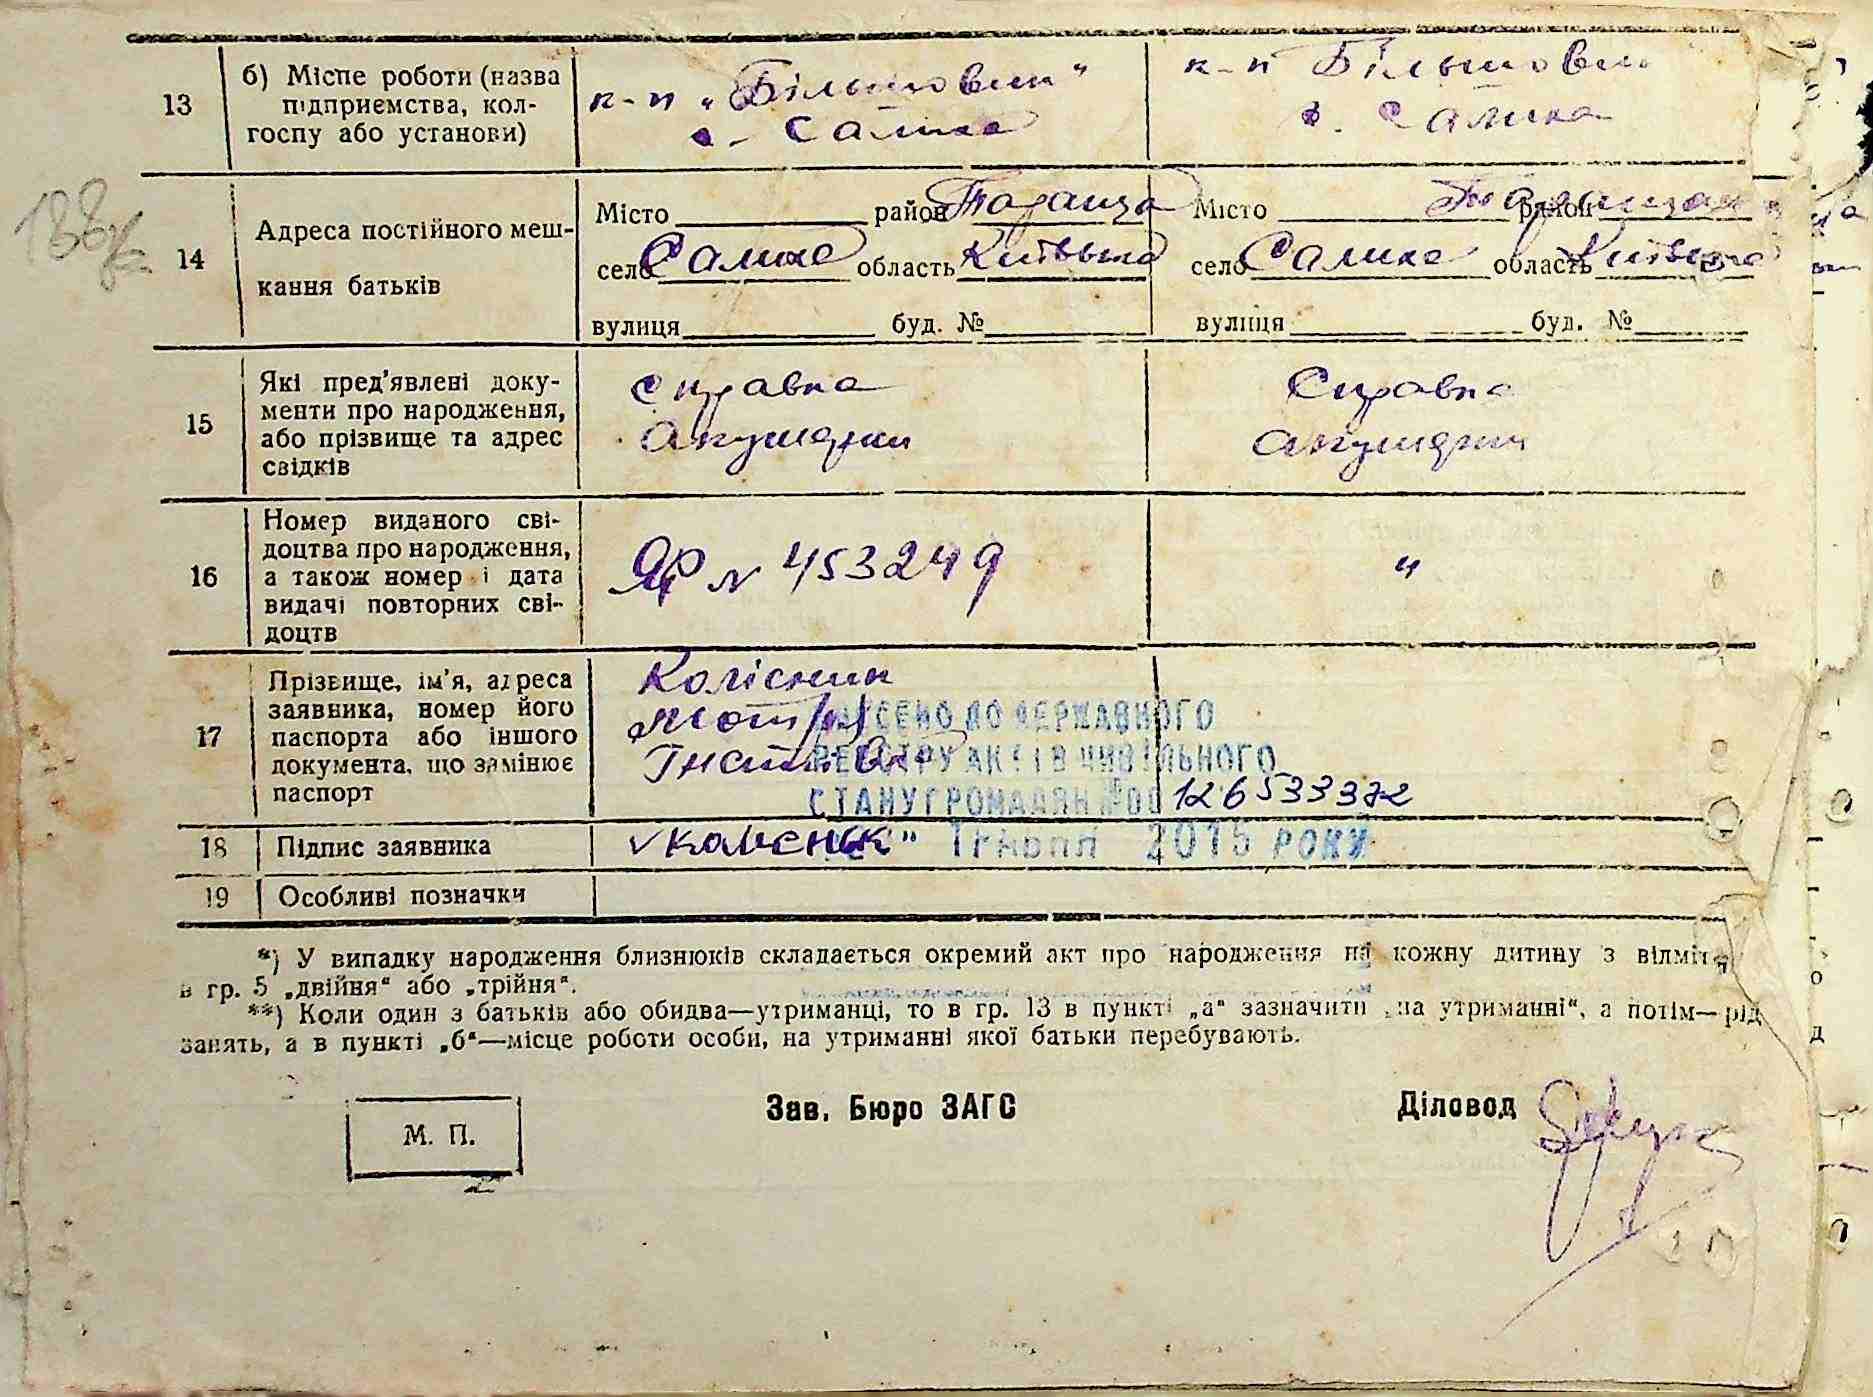 13
б) Місце роботи (назва
підприємства, кол-
госпу або установи)
к-п „Більшовик"
с. Салиха
к-п Більшовик
с. Салиха
138
14
Адреса постійного меш-
кання батьків
Місто район Тараща
село Салиха область Київська
вулиця буд. №
Місто район
село Салиха область Київська
вулиця буд. №
15
Які пред'явлені доку-
менти про народження,
або прізвище та адрес
свідків
справка
акушерки
Справка
акушерки
16
Номер виданого сві-
доцтва про народження,
а також номер і дата
видачі повторних сві-
доцтв
N 453249
"
17
Прізвище, ім'я, адреса
заявника, номер його
паспорта або іншого
документа, що замінює
паспорт
Колісник
Мотря
ВНЕСЕНО ДО ДЕРЖАВНОГО
РЕЄСТРУ АКТІВ ЦИВІЛЬНОГО
СТАНУ ГРОМАДЯН №00126533372
" травня 2015 РОКУ
18
Підпис заявника
19
Особливі позначки
*) У випадку народження близнюків складається окремий акт про народження на кожну дитину з відміт
в гр. 5 „двійня" або „трійня".
**) Коли один з батьків або обидва—утриманці, то в гр. 13 в пункті „а" зазначити „на утриманні", а потім—рід
занять, а в пункті „б"—місце роботи особи, на утриманні якої батьки перебувають.
М. П.
Зав. Бюро ЗАГС
Діловод